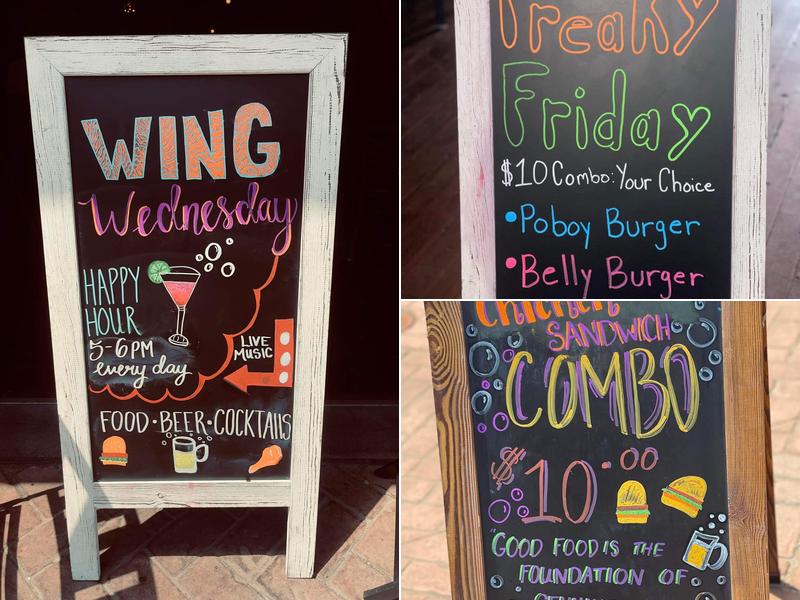 WING
Wednesday
HAPPY
HOUR
5-6PM
every day
LIVE
MUSIC
FOOD · BEER · COCKTAILS
Freaky
Friday
$10 Combo: Your Choice
• Poboy Burger
• Belly Burger
Chicken
SANDWICH
COMBO
$10.00
"GOOD FOOD IS THE
FOUNDATION OF